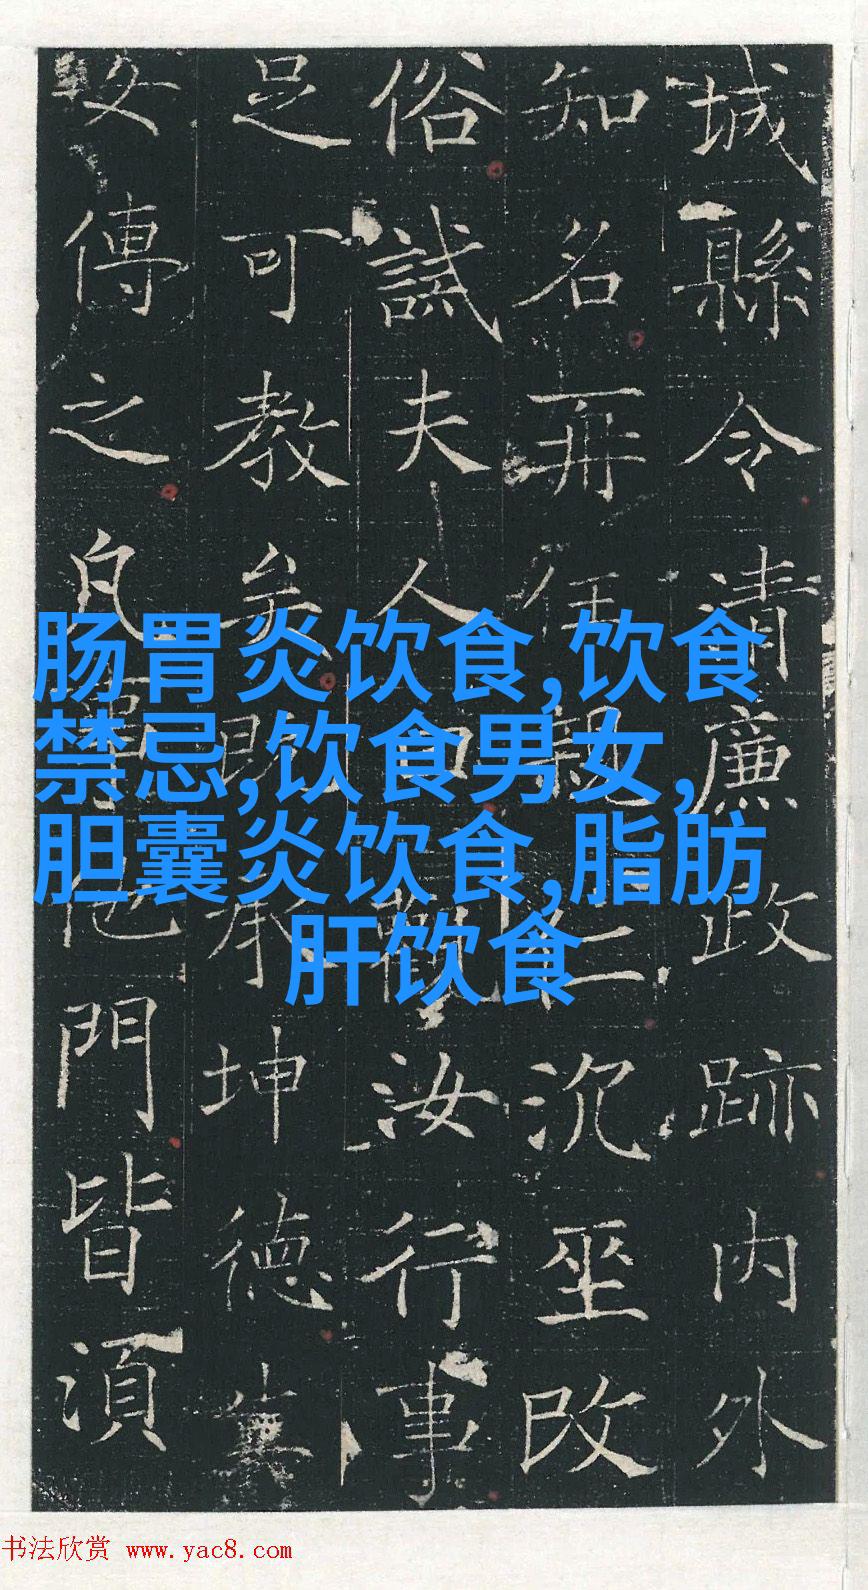 城縣令清廉政跡内外
知名再任親仁沉坐改
俗誠夫人曰觀汝行事
足可教矣既承坤德冀
女傳之凡厚他門皆須
肠胃炎饮食,饮食
禁忌,饮食男女,
胆囊炎饮食,脂肪
肝饮食
书法欣赏 www.yac8.com